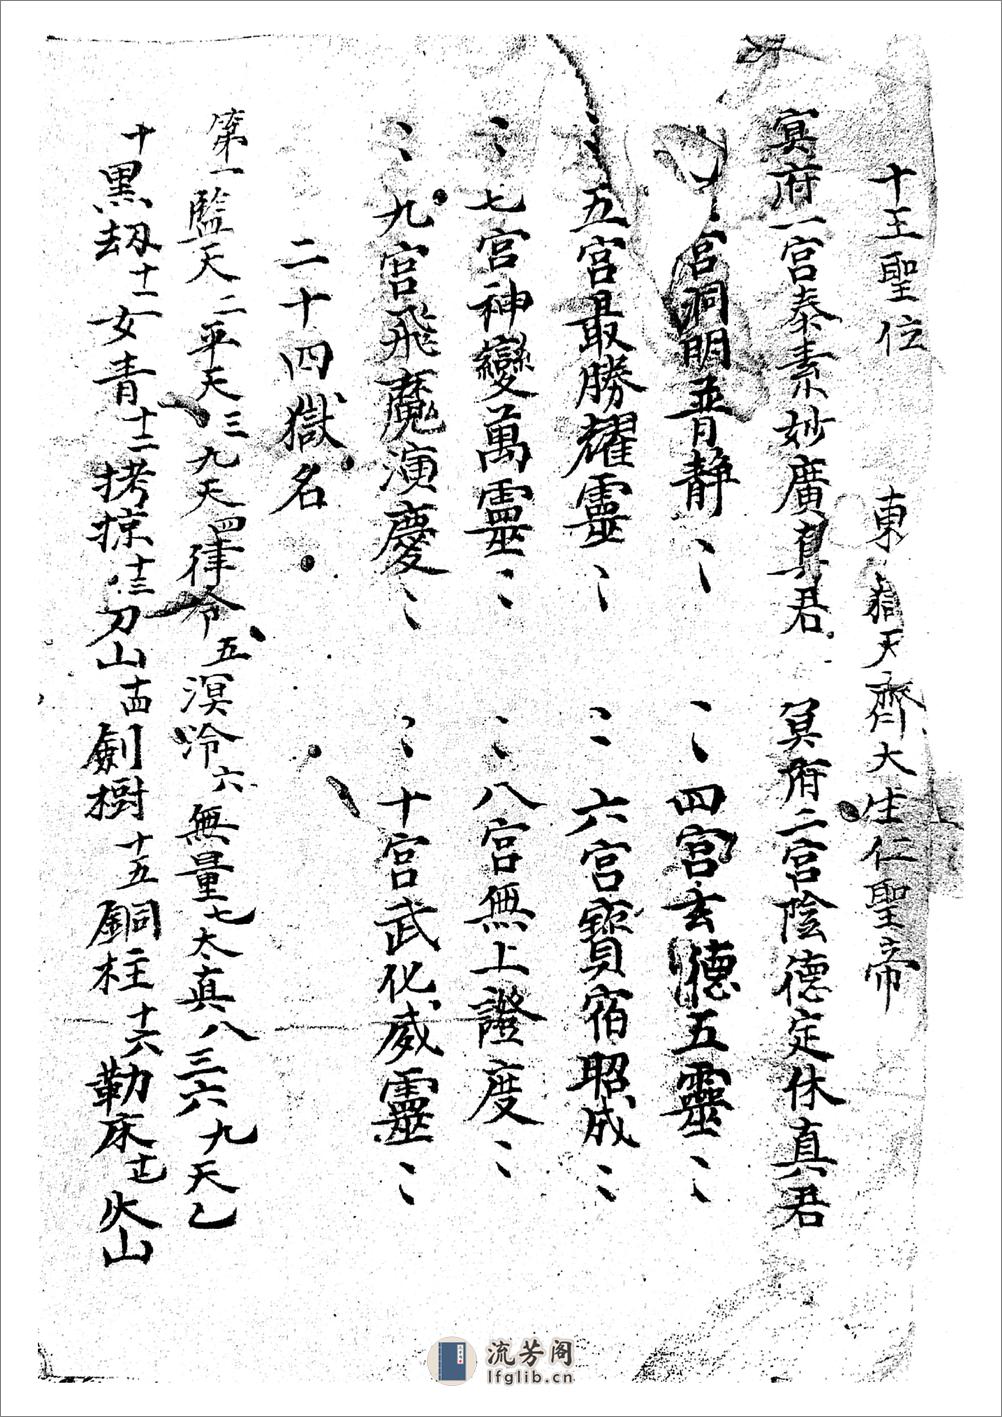 十王聖位　東嶽天齊大生仁聖帝
冥府一宮泰素妙廣真君　冥府二宮陰德定休真君
宮洞明普靜〻　〻四宮玄德五靈〻
〻五宮最勝耀靈〻　〻六宮寶宿昭成〻
〻七宮神變萬靈〻　〻八宮無上證度〻
〻九宮飛魔演慶〻　〻十宮武化威靈〻
二十四獄名
第一監天二平天三九天四律令五溟泠六無量七太真八三六九天乙
十黑劫十一女青十二拷掠十三刀山十四劍樹十五銅柱十六勒床十七火山
流芳阁
lfglib.cn